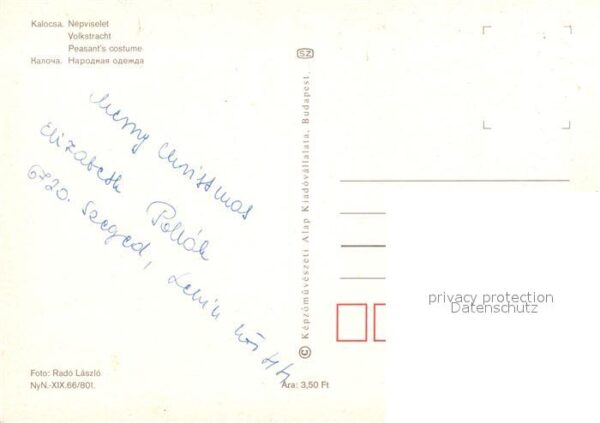 Kalocsa. Népviselet
Volkstracht
Peasant's costume
Калоча. Народная одежда
Merry Christmas
Elizabeth Pollák
6720. Szeged, Lenin
SZ
© Képzőművészeti Alap Kiadóvállalata, Budapest.
privacy protection
Datenschutz
Foto: Radó László
NyN.-XIX.66/801.
Ára: 3,50 Ft